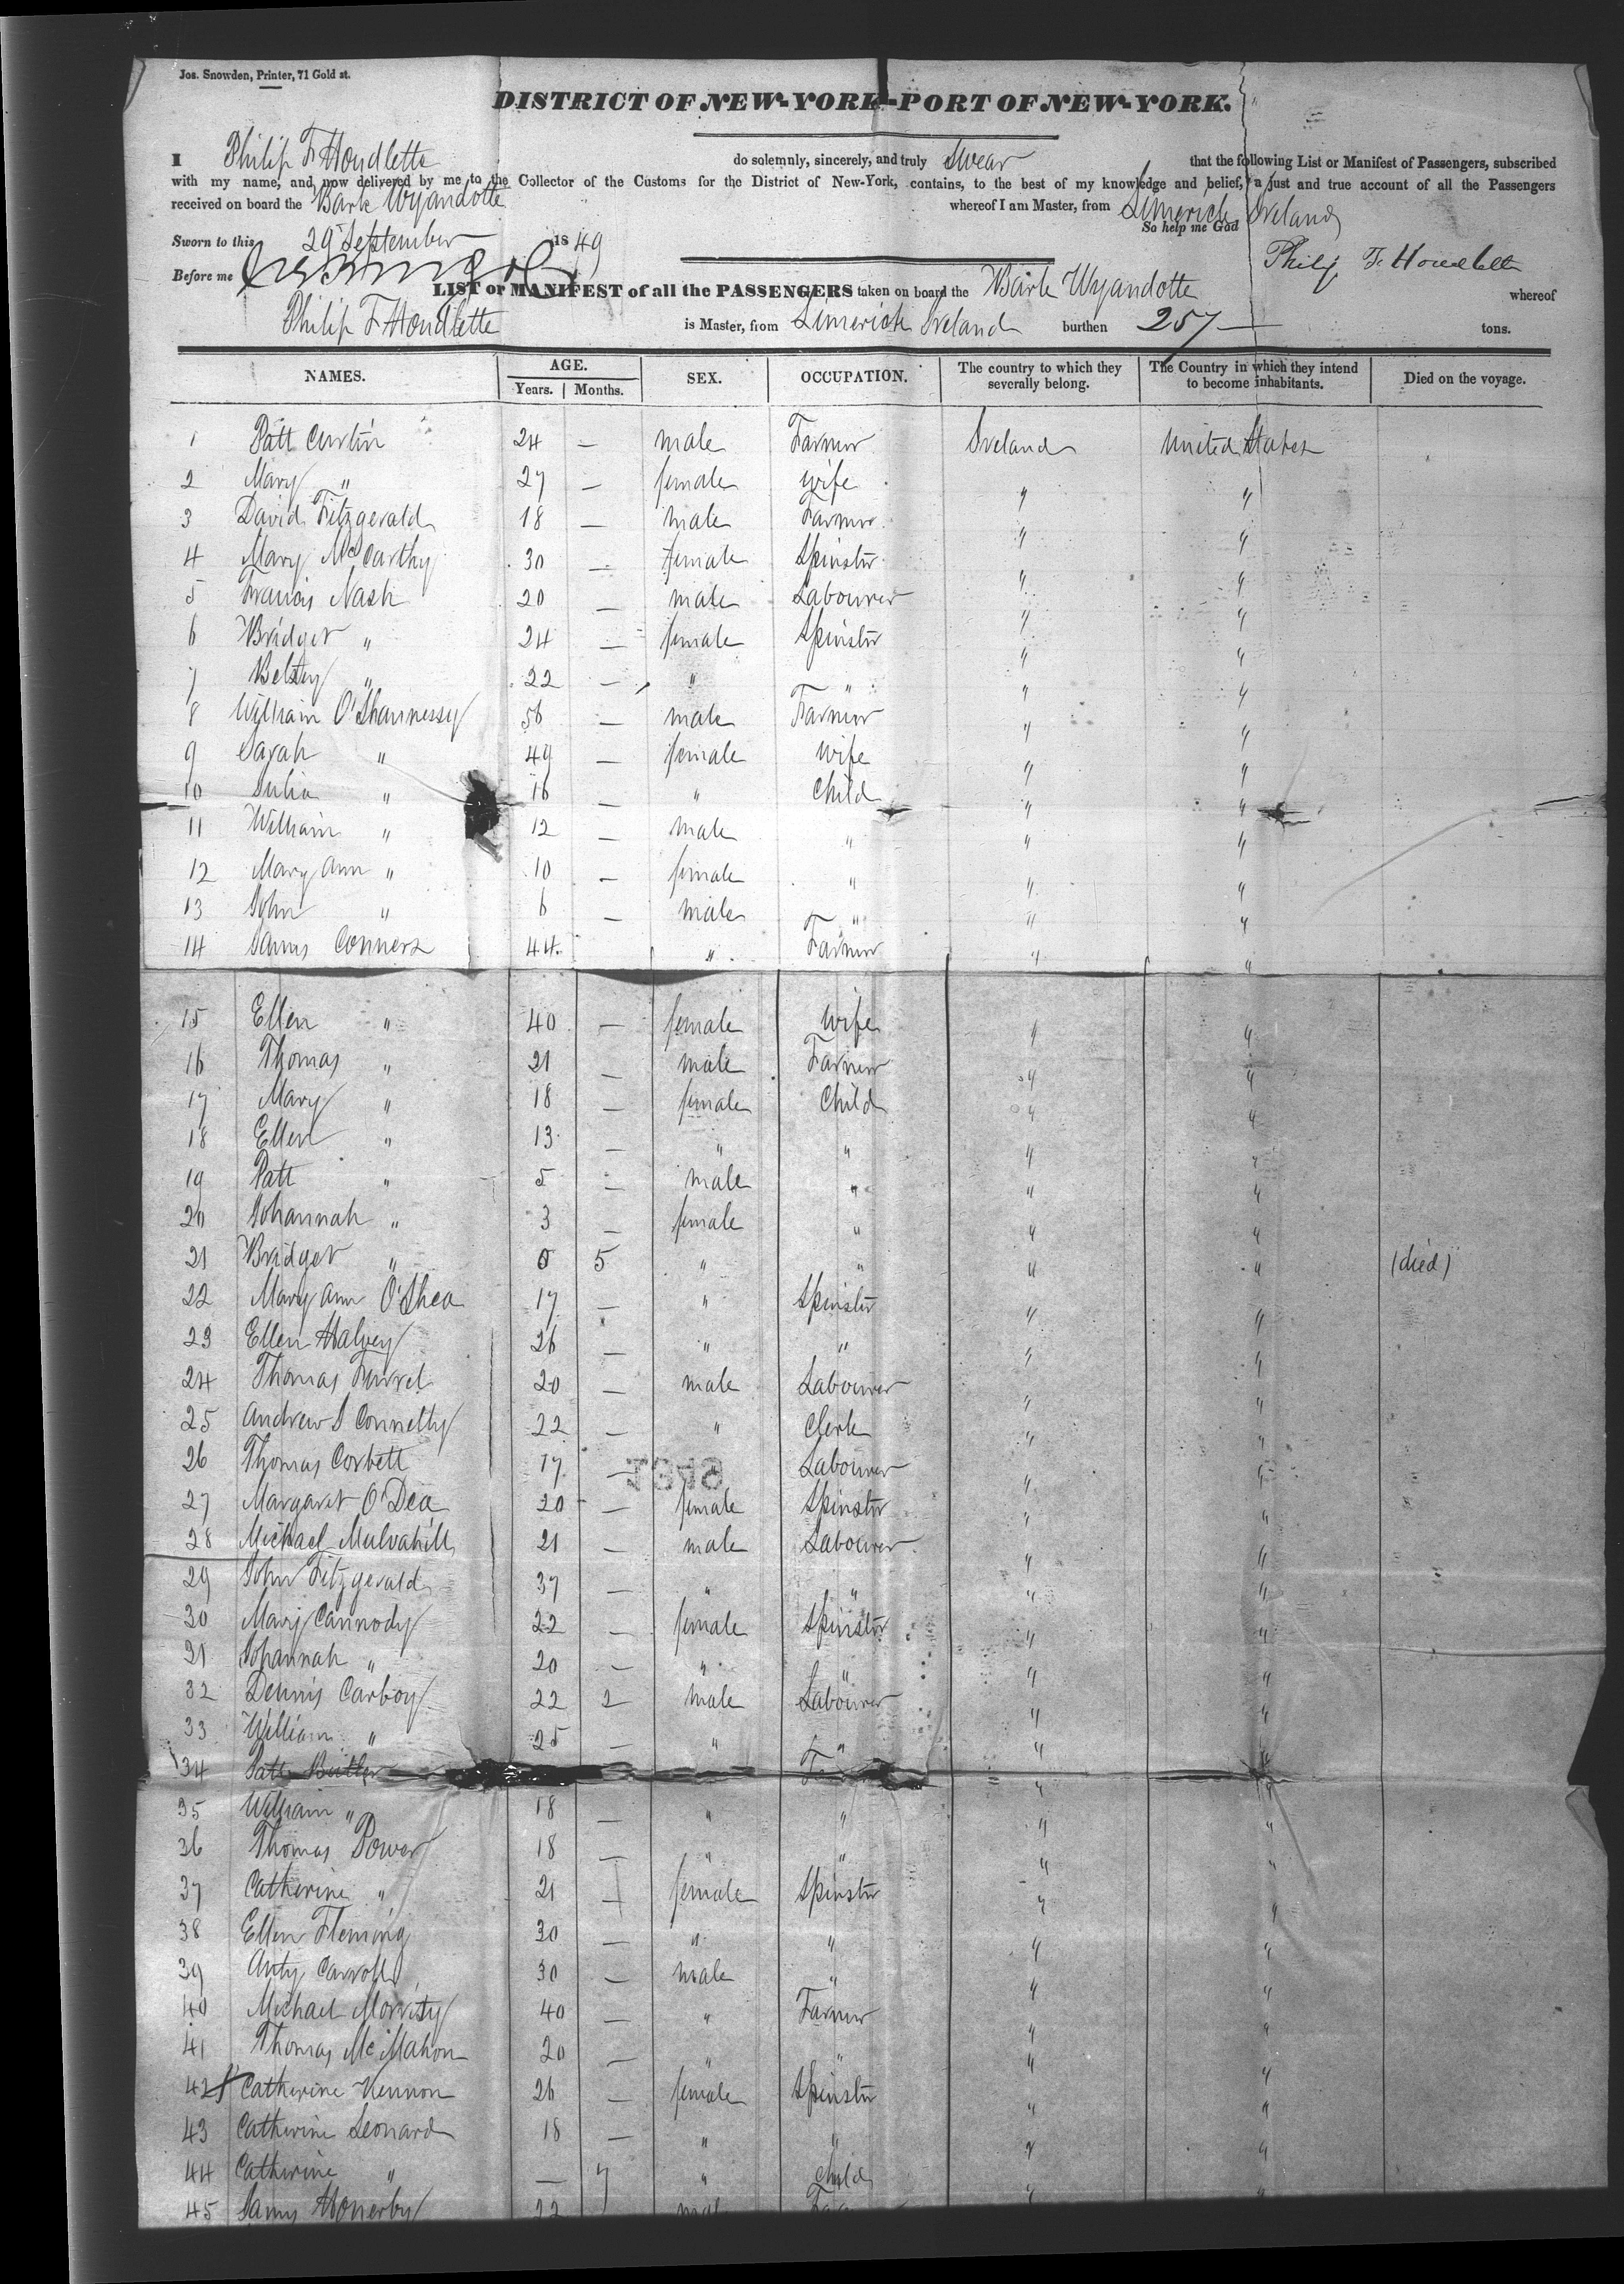 Jos. Snowden, Printer, 71 Gold st.
DISTRICT OF NEW-YORK-PORT OF NEW-YORK.
I Philip F Houdlette do solemnly, sincerely, and truly Swear that the following List or Manifest of Passengers, subscribed
with my name, and now delivered by me to the Collector of the Customs for the District of New-York, contains, to the best of my knowledge and belief, a just and true account of all the Passengers
received on board the Bark Wyandotte whereof I am Master, from Limerick Ireland
So help me God
Sworn to this 29 September 1849
Philip F. Houdlette
Before me
LIST or MANIFEST of all the PASSENGERS taken on board the Bark Wyandotte whereof
Philip F Houdlette is Master, from Limerick Ireland burthen 257 — tons.
NAMES. AGE. SEX. OCCUPATION. The country to which they severally belong. The Country in which they intend to become inhabitants. Died on the voyage.
Years. Months.
1 Patt Curtin 24 — male Farmer Ireland United States
2 Mary " 27 — female wife " "
3 David Fitzgerald 18 — male Farmer " "
4 Mary McCarthy 30 — female Spinster " "
5 Francis Nash 20 — male Labourer " "
6 Bridget " 24 — female Spinster " "
7 Betsey " 22 — " " " "
8 William O'Shannessy 56 — male Farmer " "
9 Sarah " 49 — female wife " "
10 Julia " 16 — " Child " "
11 William " 12 — male " " "
12 Mary Ann " 10 — female " " "
13 John " 6 — male " " "
14 James Conners 44 " Farmer " "
15 Ellen " 40 — female wife " "
16 Thomas " 21 — male Farmer " "
17 Mary " 18 — female Child " "
18 Ellen " 13 — " " " "
19 Patt " 5 — male " " "
20 Johannah " 3 — female " " "
21 Bridget " 0 5 " " " " (died)
22 Mary Ann O'Shea 17 — " Spinster " "
23 Ellen Halvey 26 — " " " "
24 Thomas 20 — male Labourer " "
25 Andrew S Connelly 22 — " Clerk " "
26 Thomas Corbett 17 — Labourer " "
27 Margaret O'Dea 20 — female Spinster " "
28 Michael Mulvahill 21 — male Labourer " "
29 John Fitzgerald 37 — " " " "
30 Mary Cannody 22 — female Spinster " "
31 Johannah " 20 — " " " "
32 Dennis Carboy 22 2 male Labourer " "
33 William " 25 — " " " "
34 Patt Butler
35 William " 18 — " " " "
36 Thomas Power 18 — " " " "
37 Catherine " 21 — female Spinster " "
38 Ellen Fleming 30 — " " " "
39 Anty Carroll 30 — male " " "
40 Michael Morrisy 40 — " Farmer " "
41 Thomas McMahon 20 — " " " "
42 Catherine Kennon 26 — female Spinster " "
43 Catherine Leonard 18 — " " " "
44 Catherine " — 7 " Child " "
45 James 22